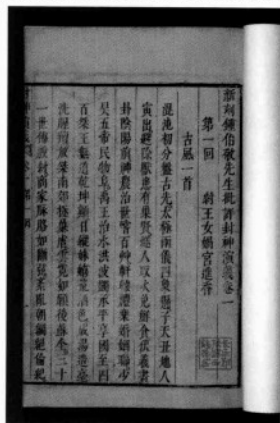 新刻鍾伯敬先生批評封神演義卷一
第一回 紂王女媧宮進香
古風一首
混沌初分盤古先太極兩儀四象懸子天丑地人
寅出避除獸患有巢賢燧人取火免鮮食伏羲畫
卦陰陽前神農治世嘗百草軒轅禮樂婚姻聯少
昊五帝民物阜禹王治水洪波蠲承平享國至四
百桀王無道乾坤顛日縱妹喜荒酒色成湯造亳
洗腥羶放桀南暴虐雲霓如願後蘇全三十
一世傳殷紂商家脈絡如斷弦紊亂朝綱絕倫紀